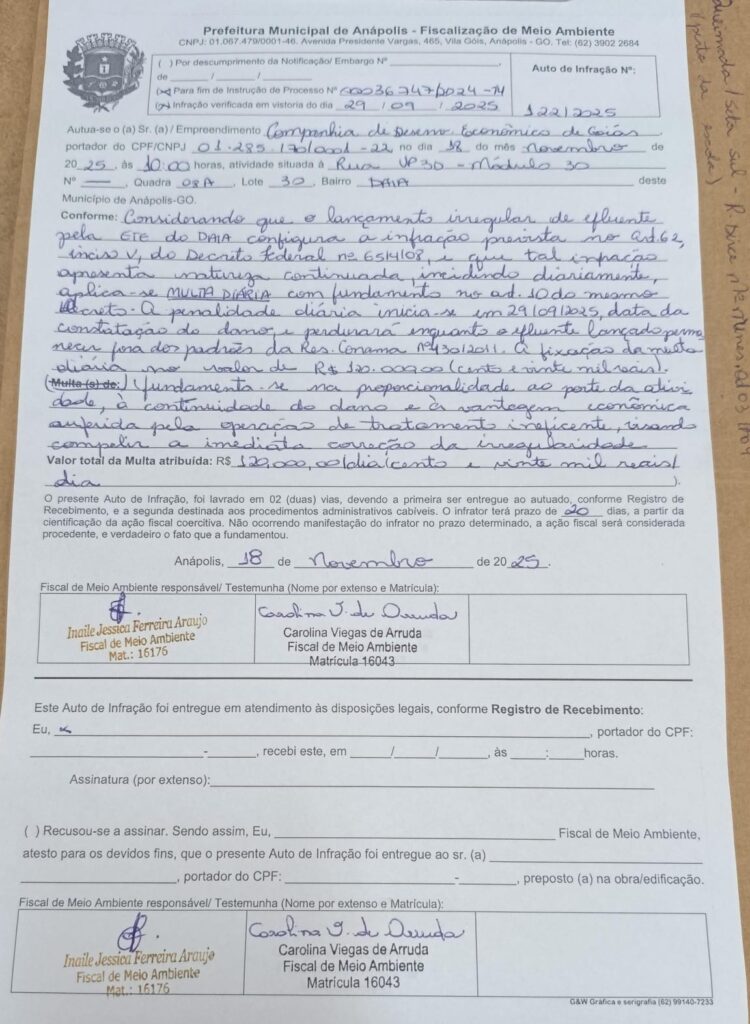 Prefeitura Municipal de Anápolis - Fiscalização de Meio Ambiente
CNPJ: 01.067.479/0001-46. Avenida Presidente Vargas, 465, Vila Góis, Anápolis - GO. Tel: (62) 3902 2684
( ) Por descumprimento da Notificação/ Embargo Nº
de ____ / ____ / ____
(x) Para fim de Instrução de Processo Nº 00036747/2024-14
(x) Infração verificada em vistoria do dia 29 / 09 / 2025
Auto de Infração Nº:
122/2025
Autua-se o (a) Sr. (a) / Empreendimento Companhia de Desenv. Econômico de Goiás
portador do CPF/CNPJ 01.285.170/0001-22 no dia 18 do mês novembro de
20 25, às 10:00 horas, atividade situada à Rua VP3D - Módulo 30
Nº —, Quadra 08A, Lote 30, Bairro DAIA deste
Município de Anápolis-GO.
Conforme: Considerando que o lançamento irregular de efluente
pela ETE do DAIA configura a infração prevista no art. 62,
inciso V, do Decreto Federal nº 6514/08, e que tal infração
apresenta natureza continuada, incidindo diariamente,
aplica-se MULTA DIÁRIA com fundamento no art. 10 do mesmo
Decreto. A penalidade diária inicia-se em 29/09/2025, data da
constatação do dano, e perdurará enquanto o efluente lançado perma
necer fora dos padrões da Res. Conama Nº 430/2011. A fixação da multa
diária no valor de R$ 120.000,00 (cento e vinte mil reais).
(Multa (s) de:) fundamenta-se na proporcionalidade ao porte da ativi
dade, à continuidade do dano e à vantagem econômica
auferida pela operação de tratamento ineficente, visando
compelir a imediata correção da irregularidade
Valor total da Multa atribuída: R$ 120.000,00/dia (cento e vinte mil reais/
dia).
O presente Auto de Infração, foi lavrado em 02 (duas) vias, devendo a primeira ser entregue ao autuado, conforme Registro de
Recebimento, e a segunda destinada aos procedimentos administrativos cabíveis. O infrator terá prazo de 20 dias, a partir da
cientificação da ação fiscal coercitiva. Não ocorrendo manifestação do infrator no prazo determinado, a ação fiscal será considerada
procedente, e verdadeiro o fato que a fundamentou.
Anápolis, 18 de novembro de 20 25.
Fiscal de Meio Ambiente responsável/ Testemunha (Nome por extenso e Matrícula):
Inaile Jessica Ferreira Araujo
Fiscal de Meio Ambiente
Mat.: 16176
Carolina V. de Arruda
Carolina Viegas de Arruda
Fiscal de Meio Ambiente
Matrícula 16043
Este Auto de Infração foi entregue em atendimento às disposições legais, conforme Registro de Recebimento:
Eu, x ____, portador do CPF:
____-____, recebi este, em ____/____/____, às ____:____horas.
Assinatura (por extenso):
( ) Recusou-se a assinar. Sendo assim, Eu, ____ Fiscal de Meio Ambiente,
atesto para os devidos fins, que o presente Auto de Infração foi entregue ao sr. (a)
____, portador do CPF: ____-____, preposto (a) na obra/edificação.
Fiscal de Meio Ambiente responsável/ Testemunha (Nome por extenso e Matrícula):
Inaile Jessica Ferreira Araujo
Fiscal de Meio Ambiente
Mat.: 16176
Carolina V. de Arruda
Carolina Viegas de Arruda
Fiscal de Meio Ambiente
Matrícula 16043
G&W Gráfica e serigrafia (62) 99140-7233